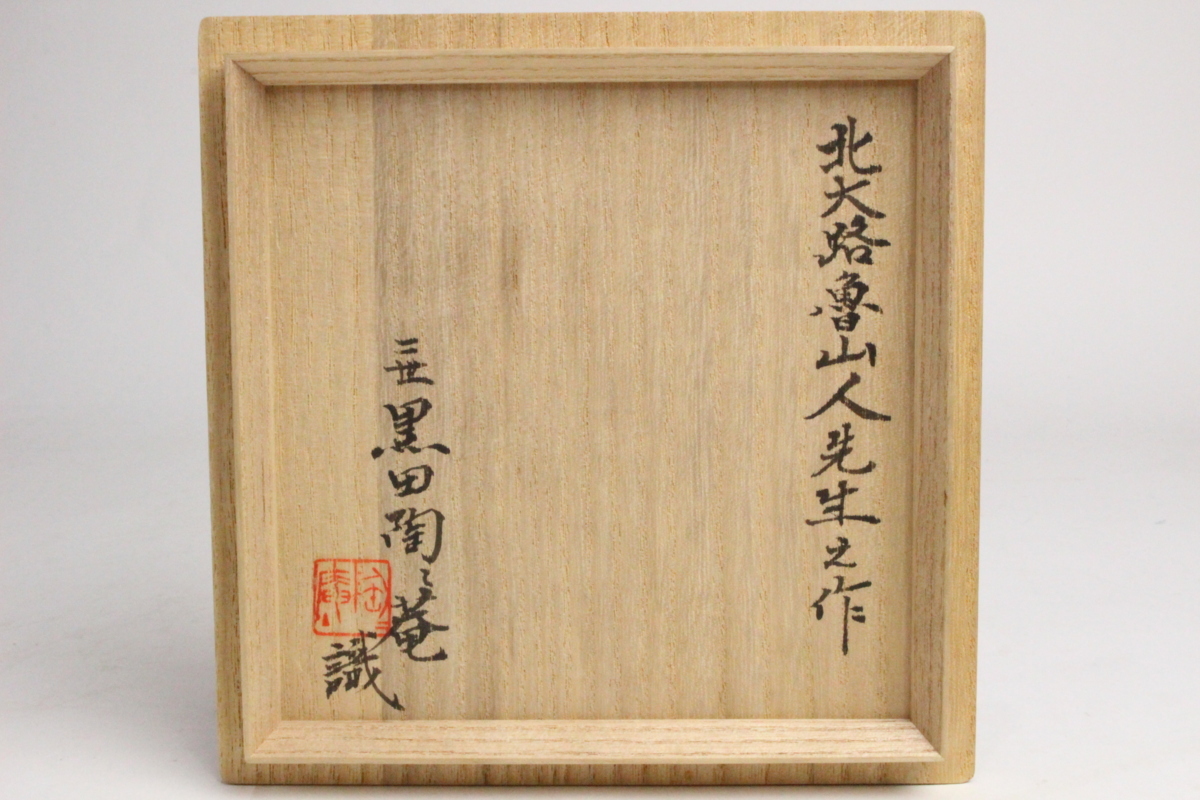 北大路魯山人先生之作
二世黒田陶〻菴
識